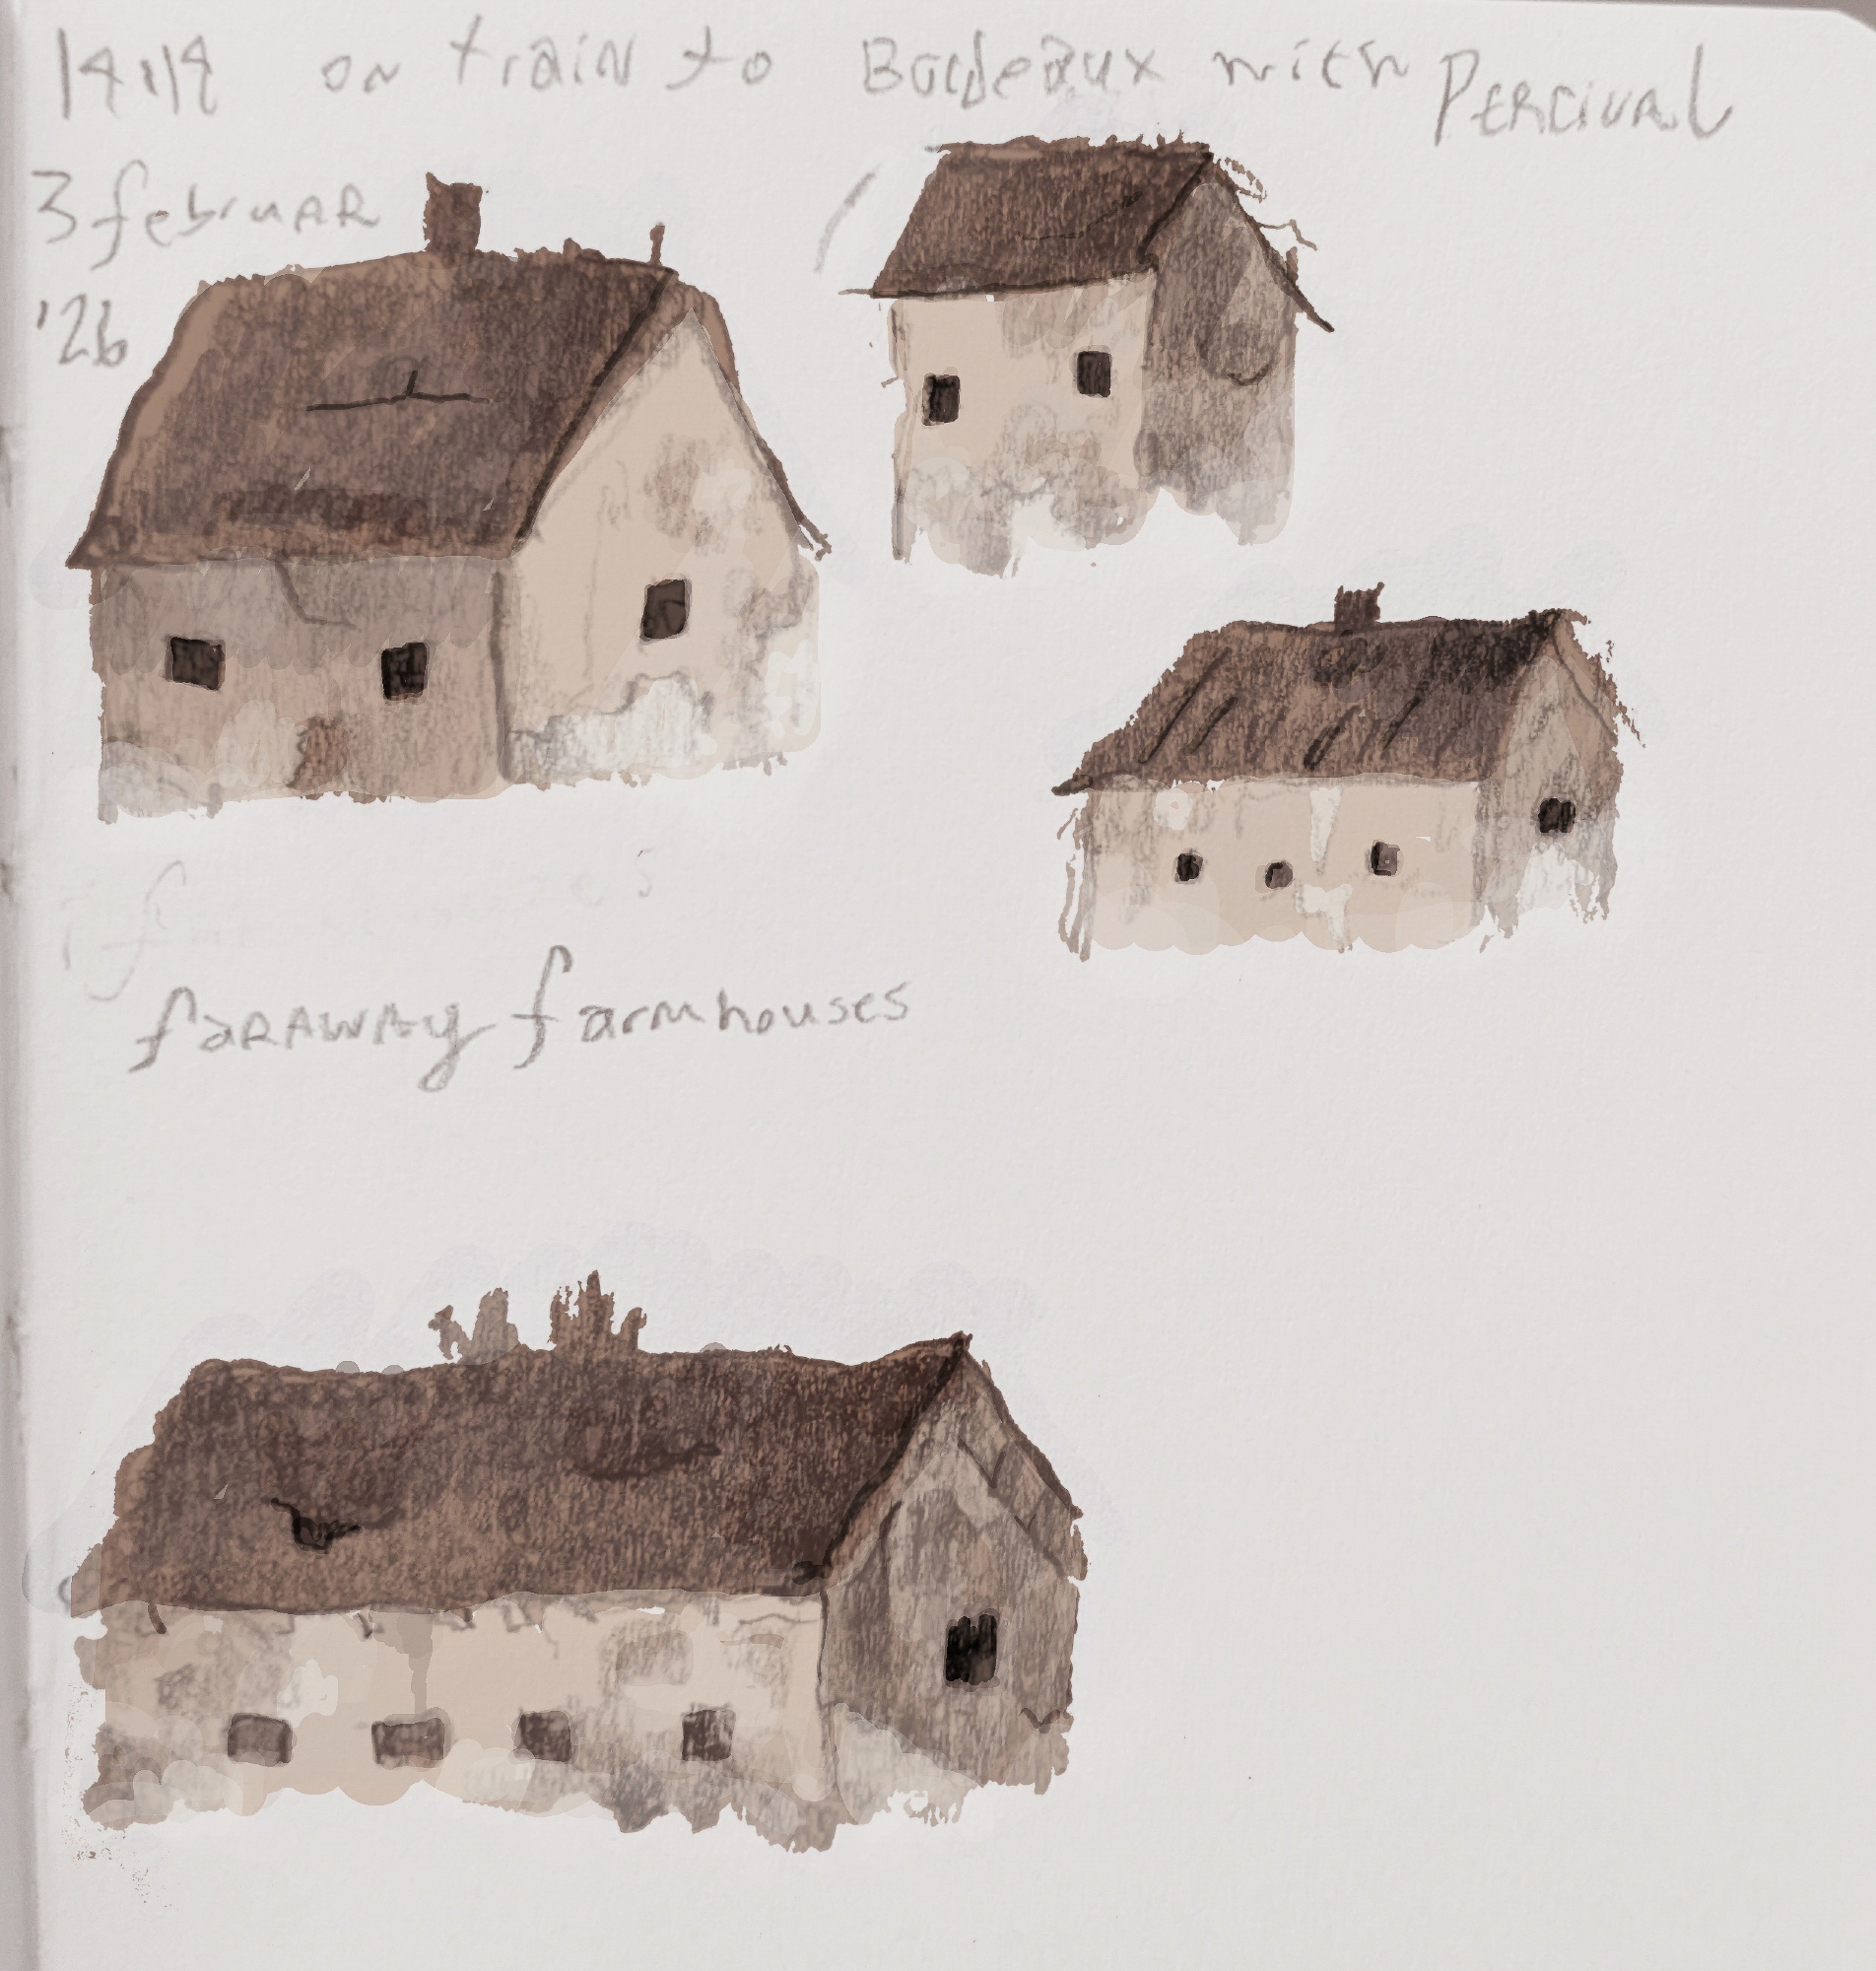 14:14 on train to Bordeaux with Percival
3 februar
'26
faraway farmhouses